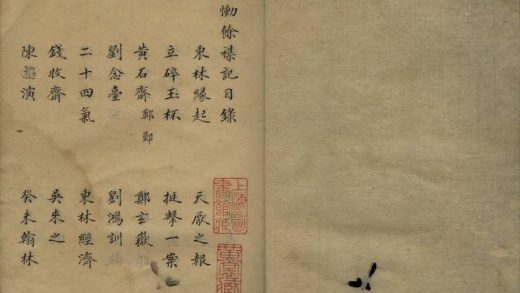 慟餘襍記目錄
東林緣起 天厭之報
立碎玉杯 挺擊一案
黃石齋 鄭鄤 鄭玄嶽
劉念臺 劉鴻訓
二十四氣 東林經濟
錢牧齋 吳來之
陳演 癸未翰林
上海圖書館藏